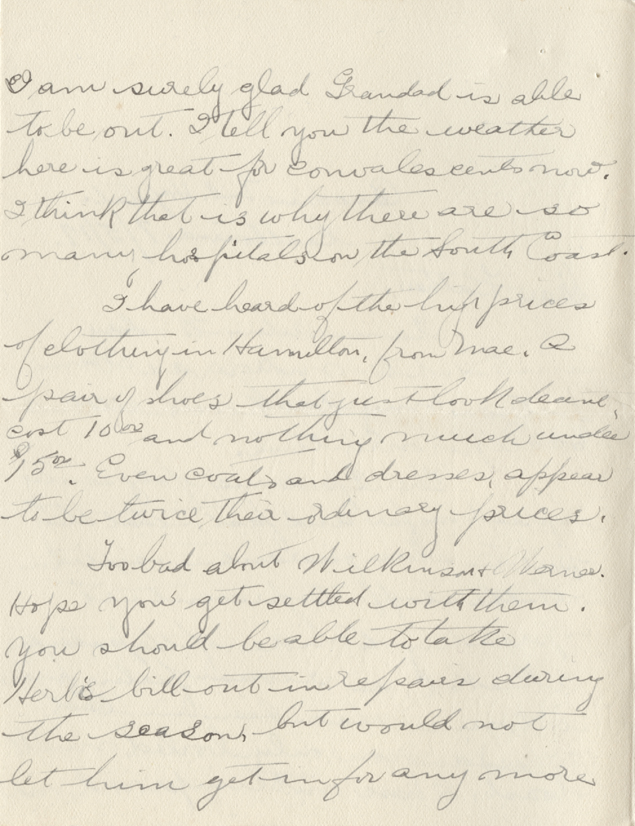 I am surely glad Grandad is able
to be out. I tell you the weather
here is great for convalescents now.
I think that is why there are so
many hospitals on the South Coast.
I have heard of the high prices
of clothing in Hamilton, from Mae. A
pair of shoes that just look decent,
cost 10.00 and nothing much under
$5.00. Even coats and dresses, appear
to be twice their ordinary prices.
Too bad about Wilkinson &
Hope you get settled with them.
You should be able to take
Herb's bill out in repairs during
the season, but would not
let him get in for any more